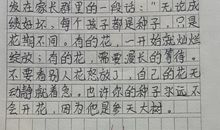 候在家长群里的一段话：“无论成
绩好坏，每个孩子都是种子，只是
花期不同。有的花，一开始就灿烂
绽放；有的花，需要漫长的等待。
不要看别人花怒放了，自己的花无
动静就着急。也许你的种子永远不
会开花，因为他是参天大树。